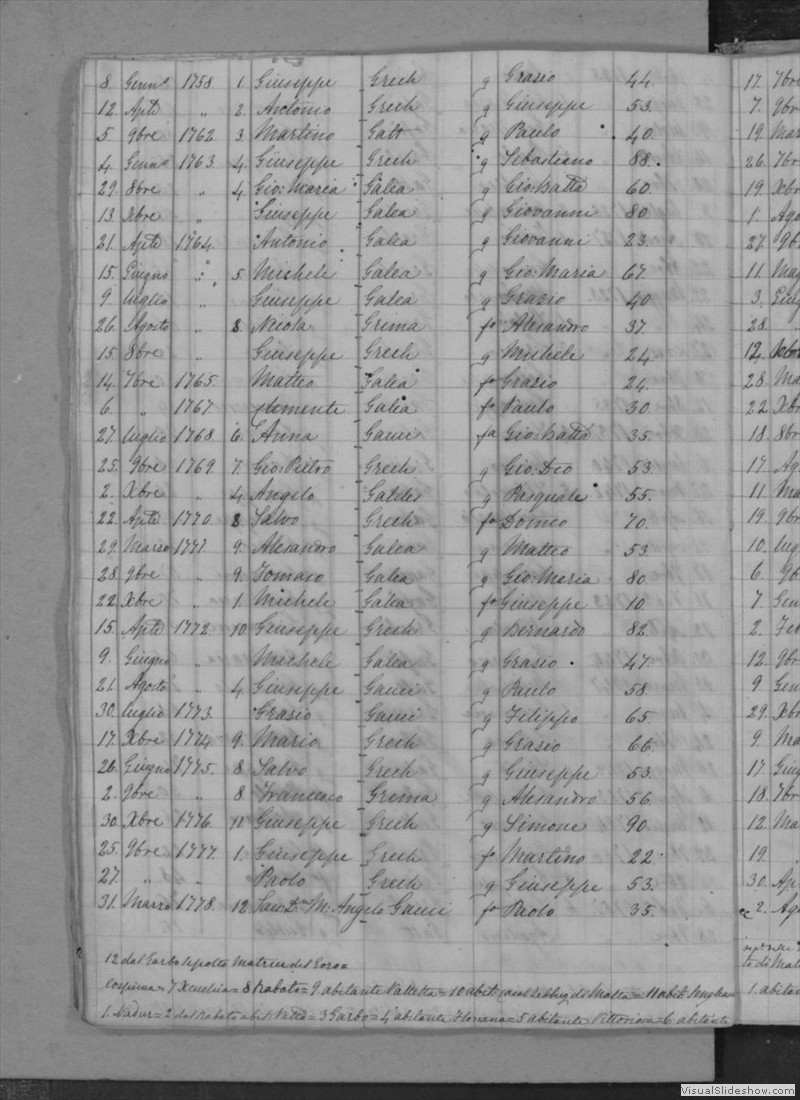 8. Genn.o 1758. 1. Giuseppe Grech g Grazio 44.
12. Aple „ 2. Antonio Grech g Giuseppe 53.
5. 9bre 1762 3. Martino Gatt g Paulo 40.
4. Genn.o 1763 4. Giuseppe Grech g Sebastiano 88.
29. 8bre „ 4. Gio: Maria Galea g Gio: Batta 60.
13. Xbre „ Giuseppe Galea g Giovanni 80
21. Aple 1764. Antonio Galea g Giovanni 23
15. Giugno „ 5. Michele Galea g Gio: Maria 67.
9. luglio „ Giuseppe Galea g Grazio 40
26. Agosto „ 8. Nicola Grima fo Alesandro 37
15. 8bre „ Giuseppe Grech g Michele 24
14. 7bre 1765. Matteo Galea fo Grazio 24.
6. „ 1767 Clemente Galea fo Paulo 30.
27. luglio 1768. 6. Anna Gauci fa Gio: Batta 35.
25. 9bre 1769. 7. Gio: Pietro Grech g Gio: Deo 53.
2. Xbre „ 4. Angelo Galdes g Pasquale 55.
22. Aple 1770. 8 Salvo Grech fo Domco 70.
29. Marzo 1771. 9. Alesandro Galea g Matteo 53.
28. 9bre „ 9. Tomaso Galea g Gio: Maria 80
22. Xbre „ 1. Michele Galea fo Giuseppe 10
15. Aple 1772 10 Giuseppe Grech g Bernardo 82.
9. Giugno „ Michele Galea g Grazio 47.
21. Agosto „ 4 Giuseppe Gauci g Paulo 58.
30. luglio 1773. Grazio Gauci g Filippo 65.
17. Xbre 1774 9. Mario Grech g Grazio 66.
26. Giugno 1775. 8 Salvo Grech g Giuseppe 53.
2. 9bre „ 8 Francesco Grima g Alesandro 56.
30. Xbre 1776. 11 Giuseppe Grech g Simone 90
25. 9bre 1777. 1. Giuseppe Grech fo Martino 22
27. „ „ Paolo Grech g Giuseppe 53.
31. Marzo 1778. 12. M. Angelo Gauci fo Paolo 35.
12 dal Garbo sepolto Matrice del Gozo =
Cospicua = 7 Xeuchia = 8 Rabato = 9 abitante Valletta = 10 abit. Casal Zebbug di Malta = 11 abit. Senglea =
1. Nadur = 2 dal Rabato abit. Vatta = 3 Garbo = 4 abitante Floriana = 5 abitante Vittoriosa = 6 abitante
17. 7bre
7. 9bre
19. Mar
26. 7br
19. Xbr
1. Ago
27. 9b
11. Mag
3. Giug
28. „
12. Xbr
28. Ma
22 Xbr
18. 8br
17. Ag
11. Ma
19. 9br
10. lug
6. 9b
7. Gen
2. Feb
12. 9br
9 Gen
29. Xb
9. Ma
17 Giug
18. 7br
12. Ma
19. „
30. Ap
2. Ag
to di Mat
1. abitan
VisualSlideshow.com